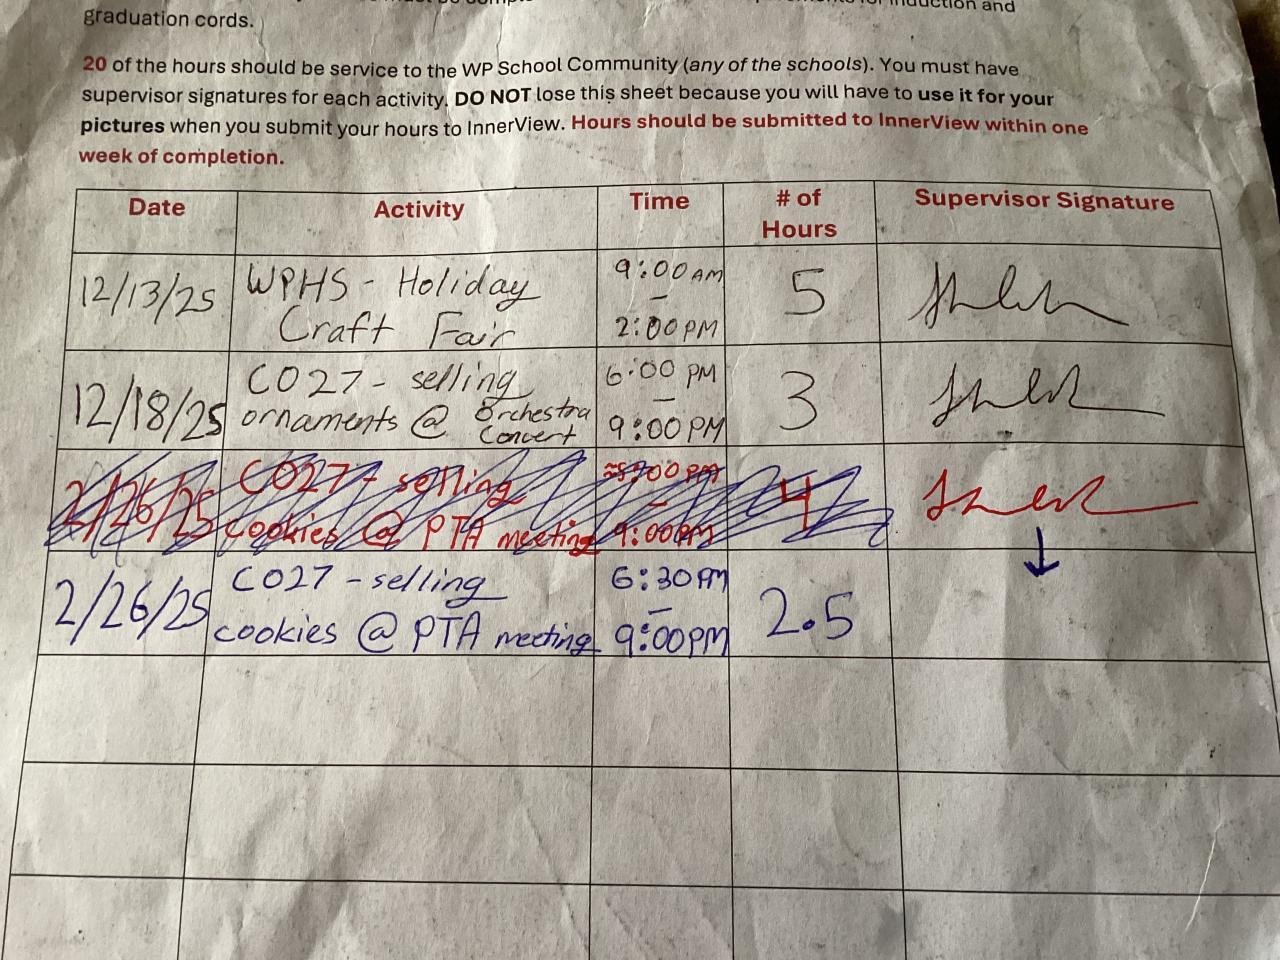 induction and
graduation cords.
20 of the hours should be service to the WP School Community (any of the schools). You must have
supervisor signatures for each activity. DO NOT lose this sheet because you will have to use it for your
pictures when you submit your hours to InnerView. Hours should be submitted to InnerView within one
week of completion.
Date Activity Time # of Hours Supervisor Signature
12/13/25 WPHS - Holiday Craft Fair 9:00 AM - 2:00 PM 5
12/18/25 CO27 - selling ornaments @ Orchestra Concert 6:00 PM - 9:00 PM 3
2/26/25 CO27 - selling cookies @ PTA meeting ≈5:00 PM - 9:00 PM 4
2/26/25 CO27 - selling cookies @ PTA meeting 6:30 PM - 9:00 PM 2.5